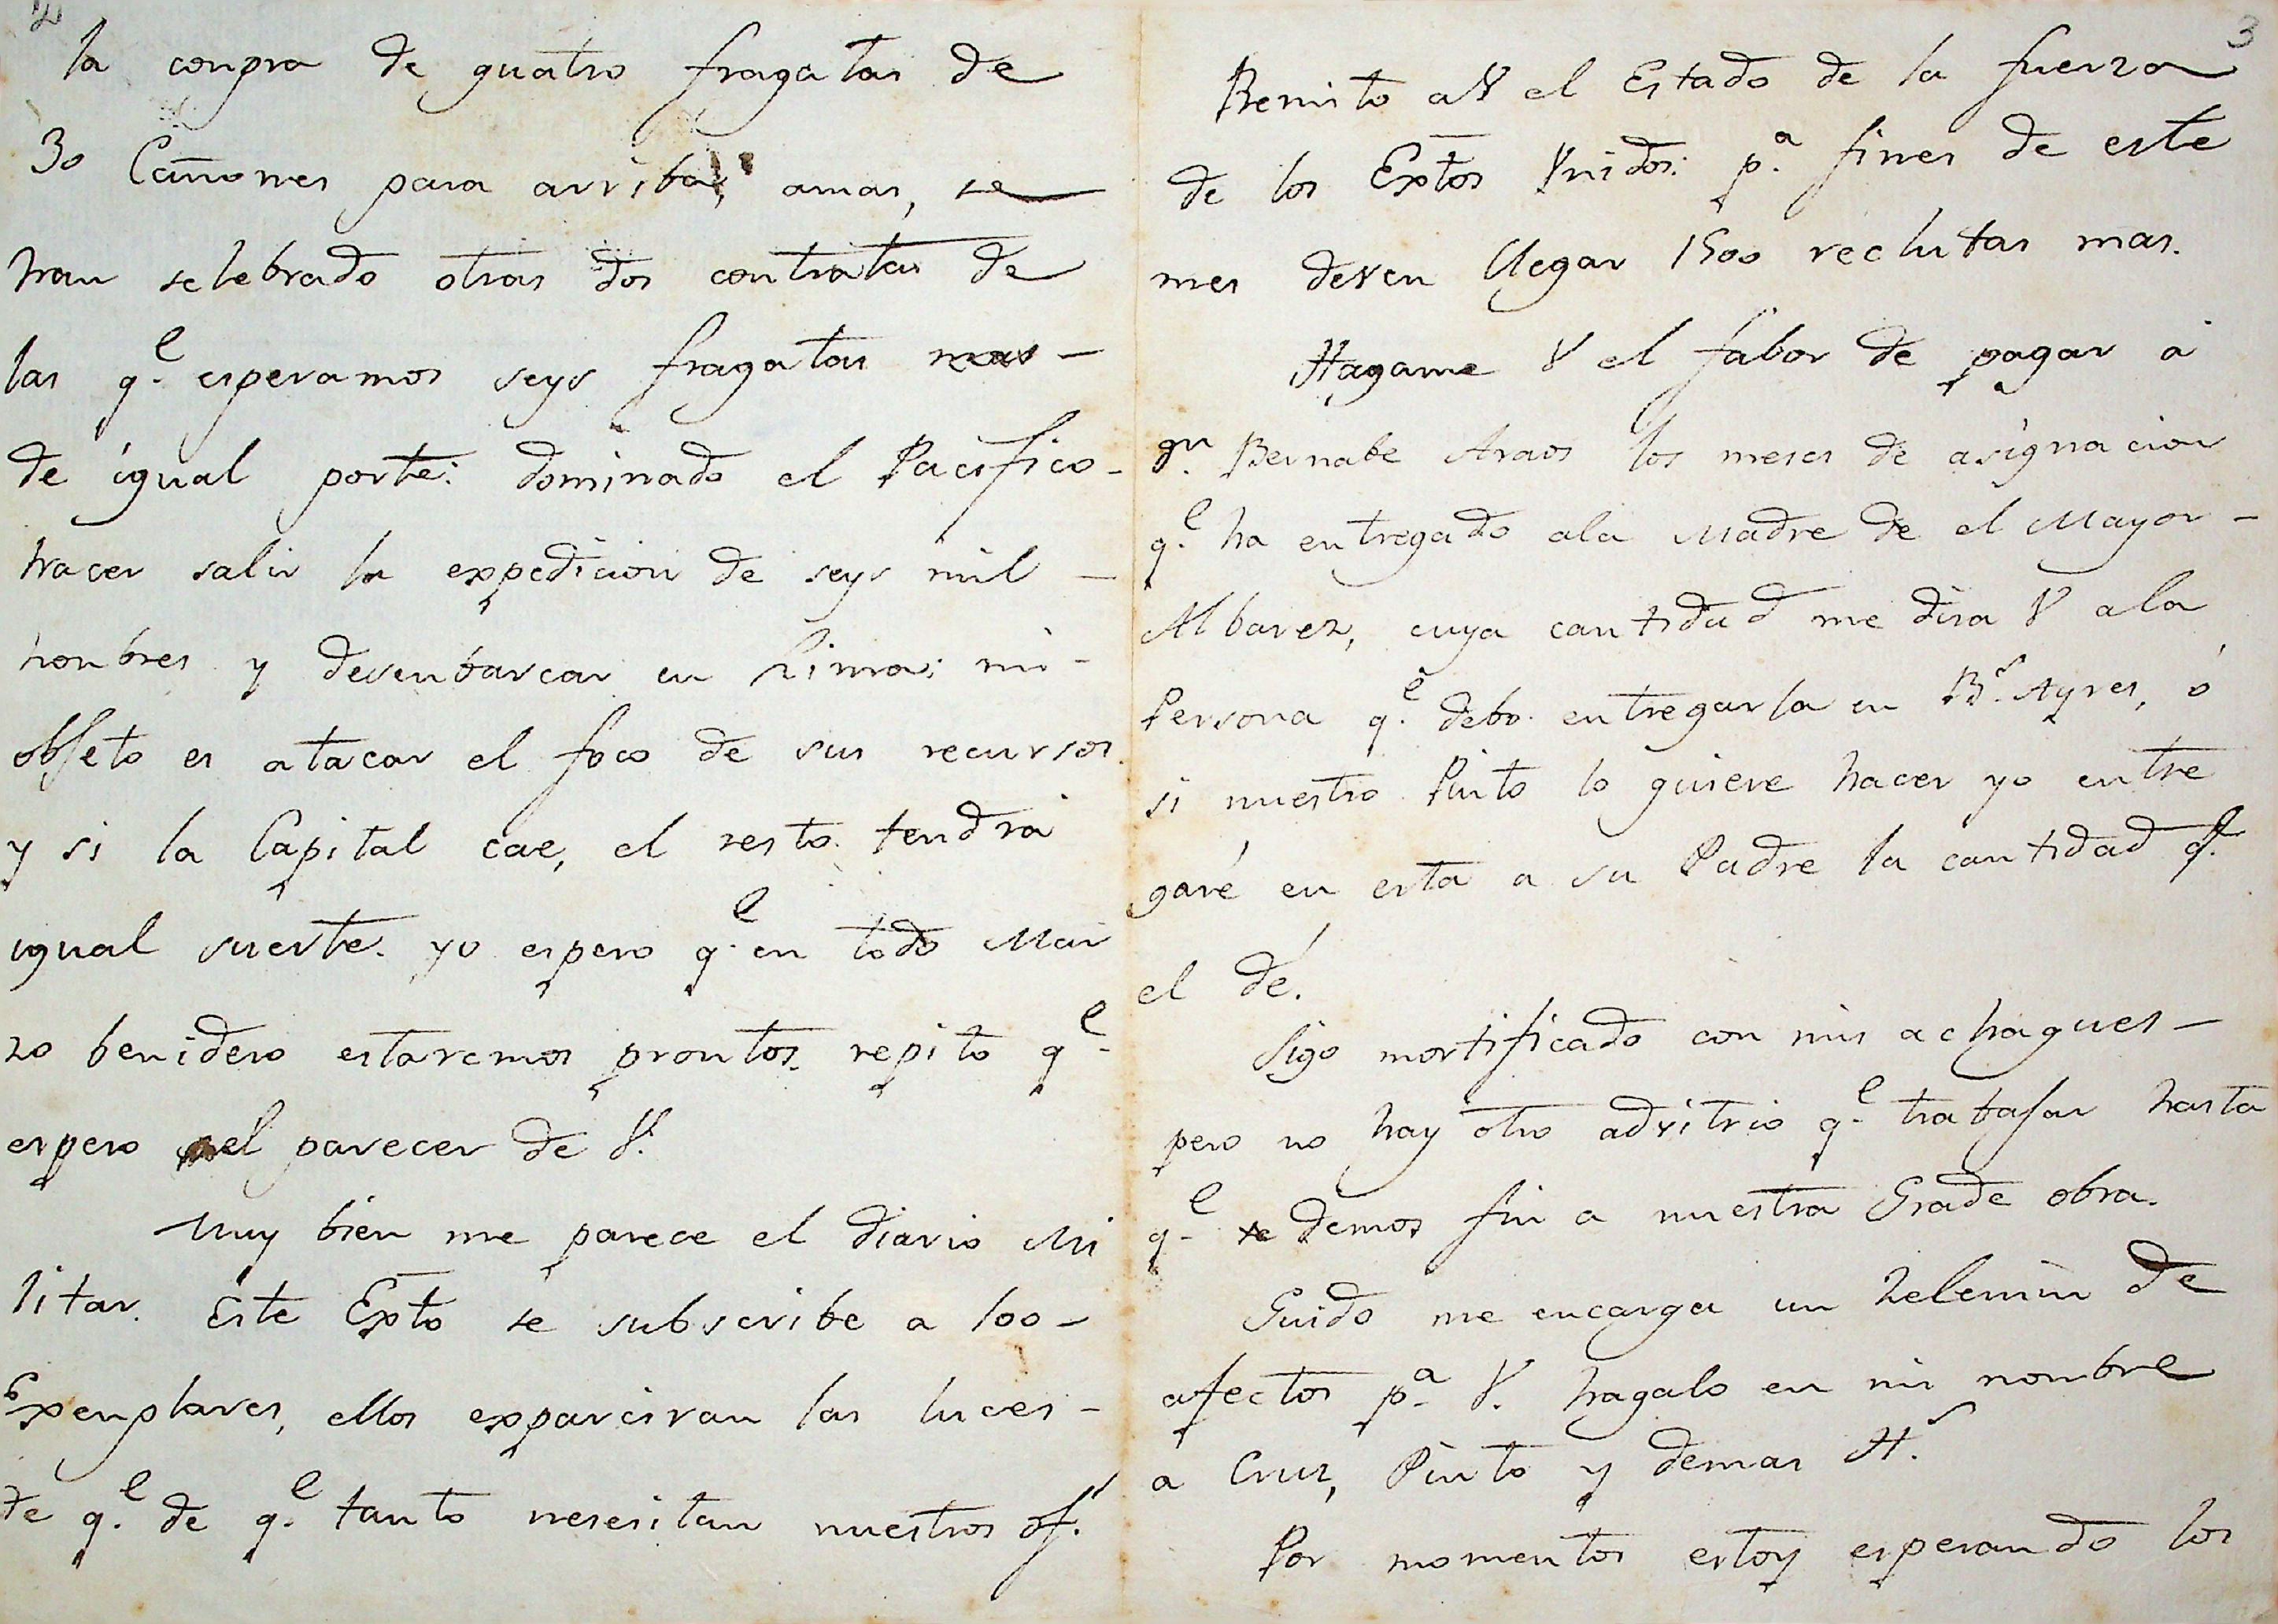 2
la conpra de quatro fragatas de
30 Cañones para arriba; amas, se
han selebrado otras dos contratas de
las q.e esperamos seys fragatas mas -
de igual porte: dominado el Pacifico -
hacer salir la expedicion de seys mil -
honbres y desenbarcar en Lima: mi -
obgeto es atacar el foco de sus recursos
y si la Capital cae, el resto tendrá
igual suerte. yo espero q.e en todo Mar
zo benidero estaremos prontos. repito q.e
espero el parecer de V.
Muy bien me parece el diario Mi
litar. Este Exto se subscribe a 100 -
Exenplares, ellos exparciran las luces -
de q.e de q.e tanto nesesitan nuestros of.s
3
Remito a V el Estado de la fuerza
de los Extos Vnidos: p.a fines de este
mes deven llegar 1500 reclutas mas.
Hagame V el fabor de pagar á
Dn. Bernabe Araos los meses de asignacion
q.e ha entregado ala Madre de el Mayor -
Albarez, cuya cantidad me dira V ala
Persona q.e debo entregarla en B.s Ayres, ó
si nuestro Pinto lo quiere hacer yo entre
garé en esta a su Padre la cantidad q.e
el dé.
Sigo mortificado con mis achaques -
pero no hay otro advitrio q.e trabajar hasta
q.e demos fin a nuestra Grade obra.
Guido me encarga un Zelemin de
afectos p.a V. hagalo en mi nombre
a Cruz, Pinto y demas H.s
Por momentos estoy esperando los